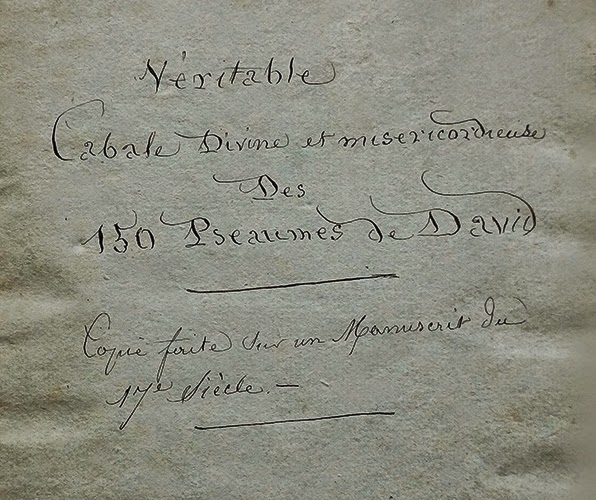 Véritable
Cabale Divine et misericordieuse
Des
150 Pseaumes de David
Copie faite sur un Manuscrit du
17e Siècle. —